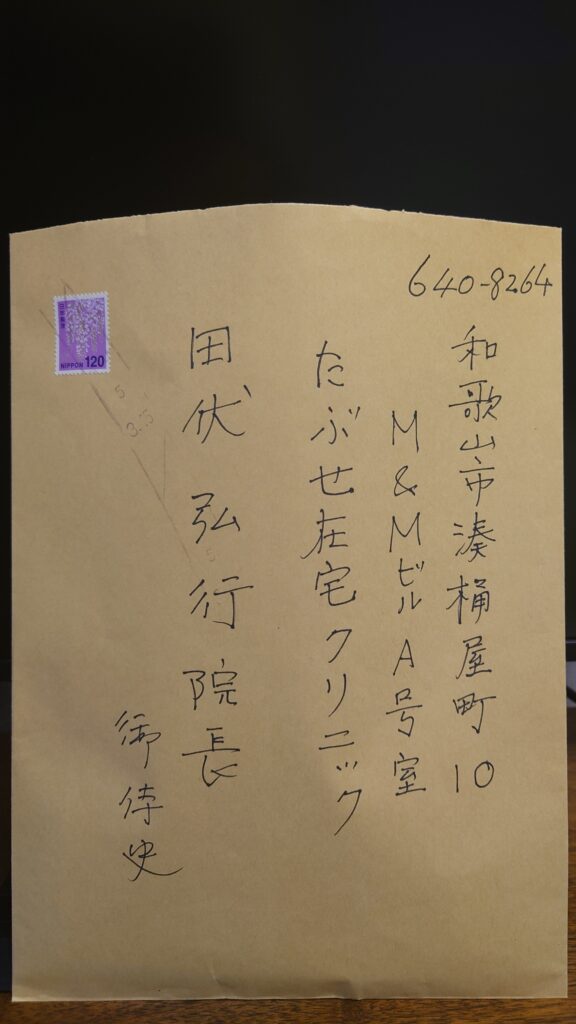 640-8264
和歌山市湊桶屋町10
M&MビルA号室
たぶせ在宅クリニック
田伏弘行院長
御侍史
日本郵便
NIPPON 120